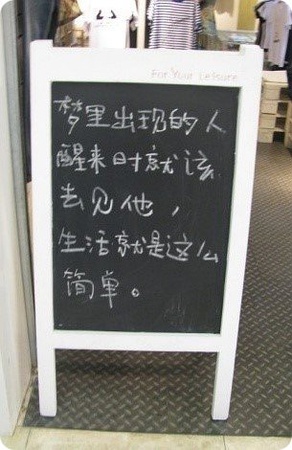 For Your Leisure
梦里出现的人
醒来时就该
去见他，
生活就是这么
简单。